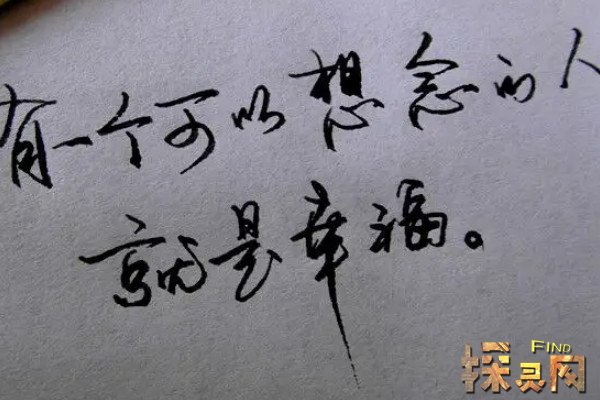 有一个可以想念的人
就是幸福。
FIND
探灵网